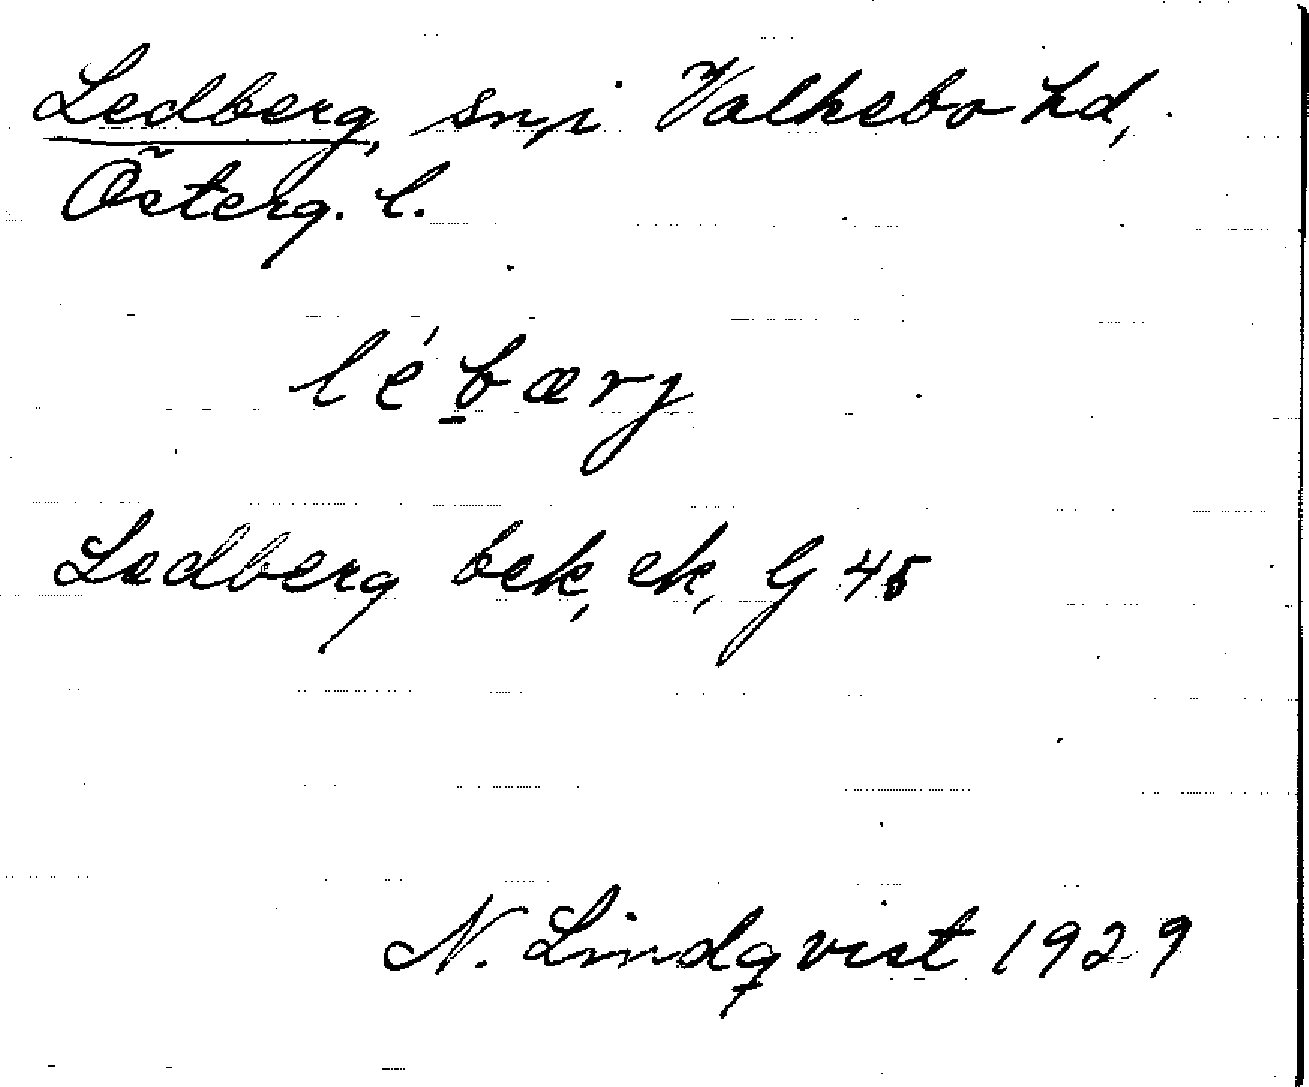 Ledberg, sn, i Valkebo hd,
Österg. l.
lé b̲ærj
Ledberg bek, ek, G 45
N. Lindqvist 1929